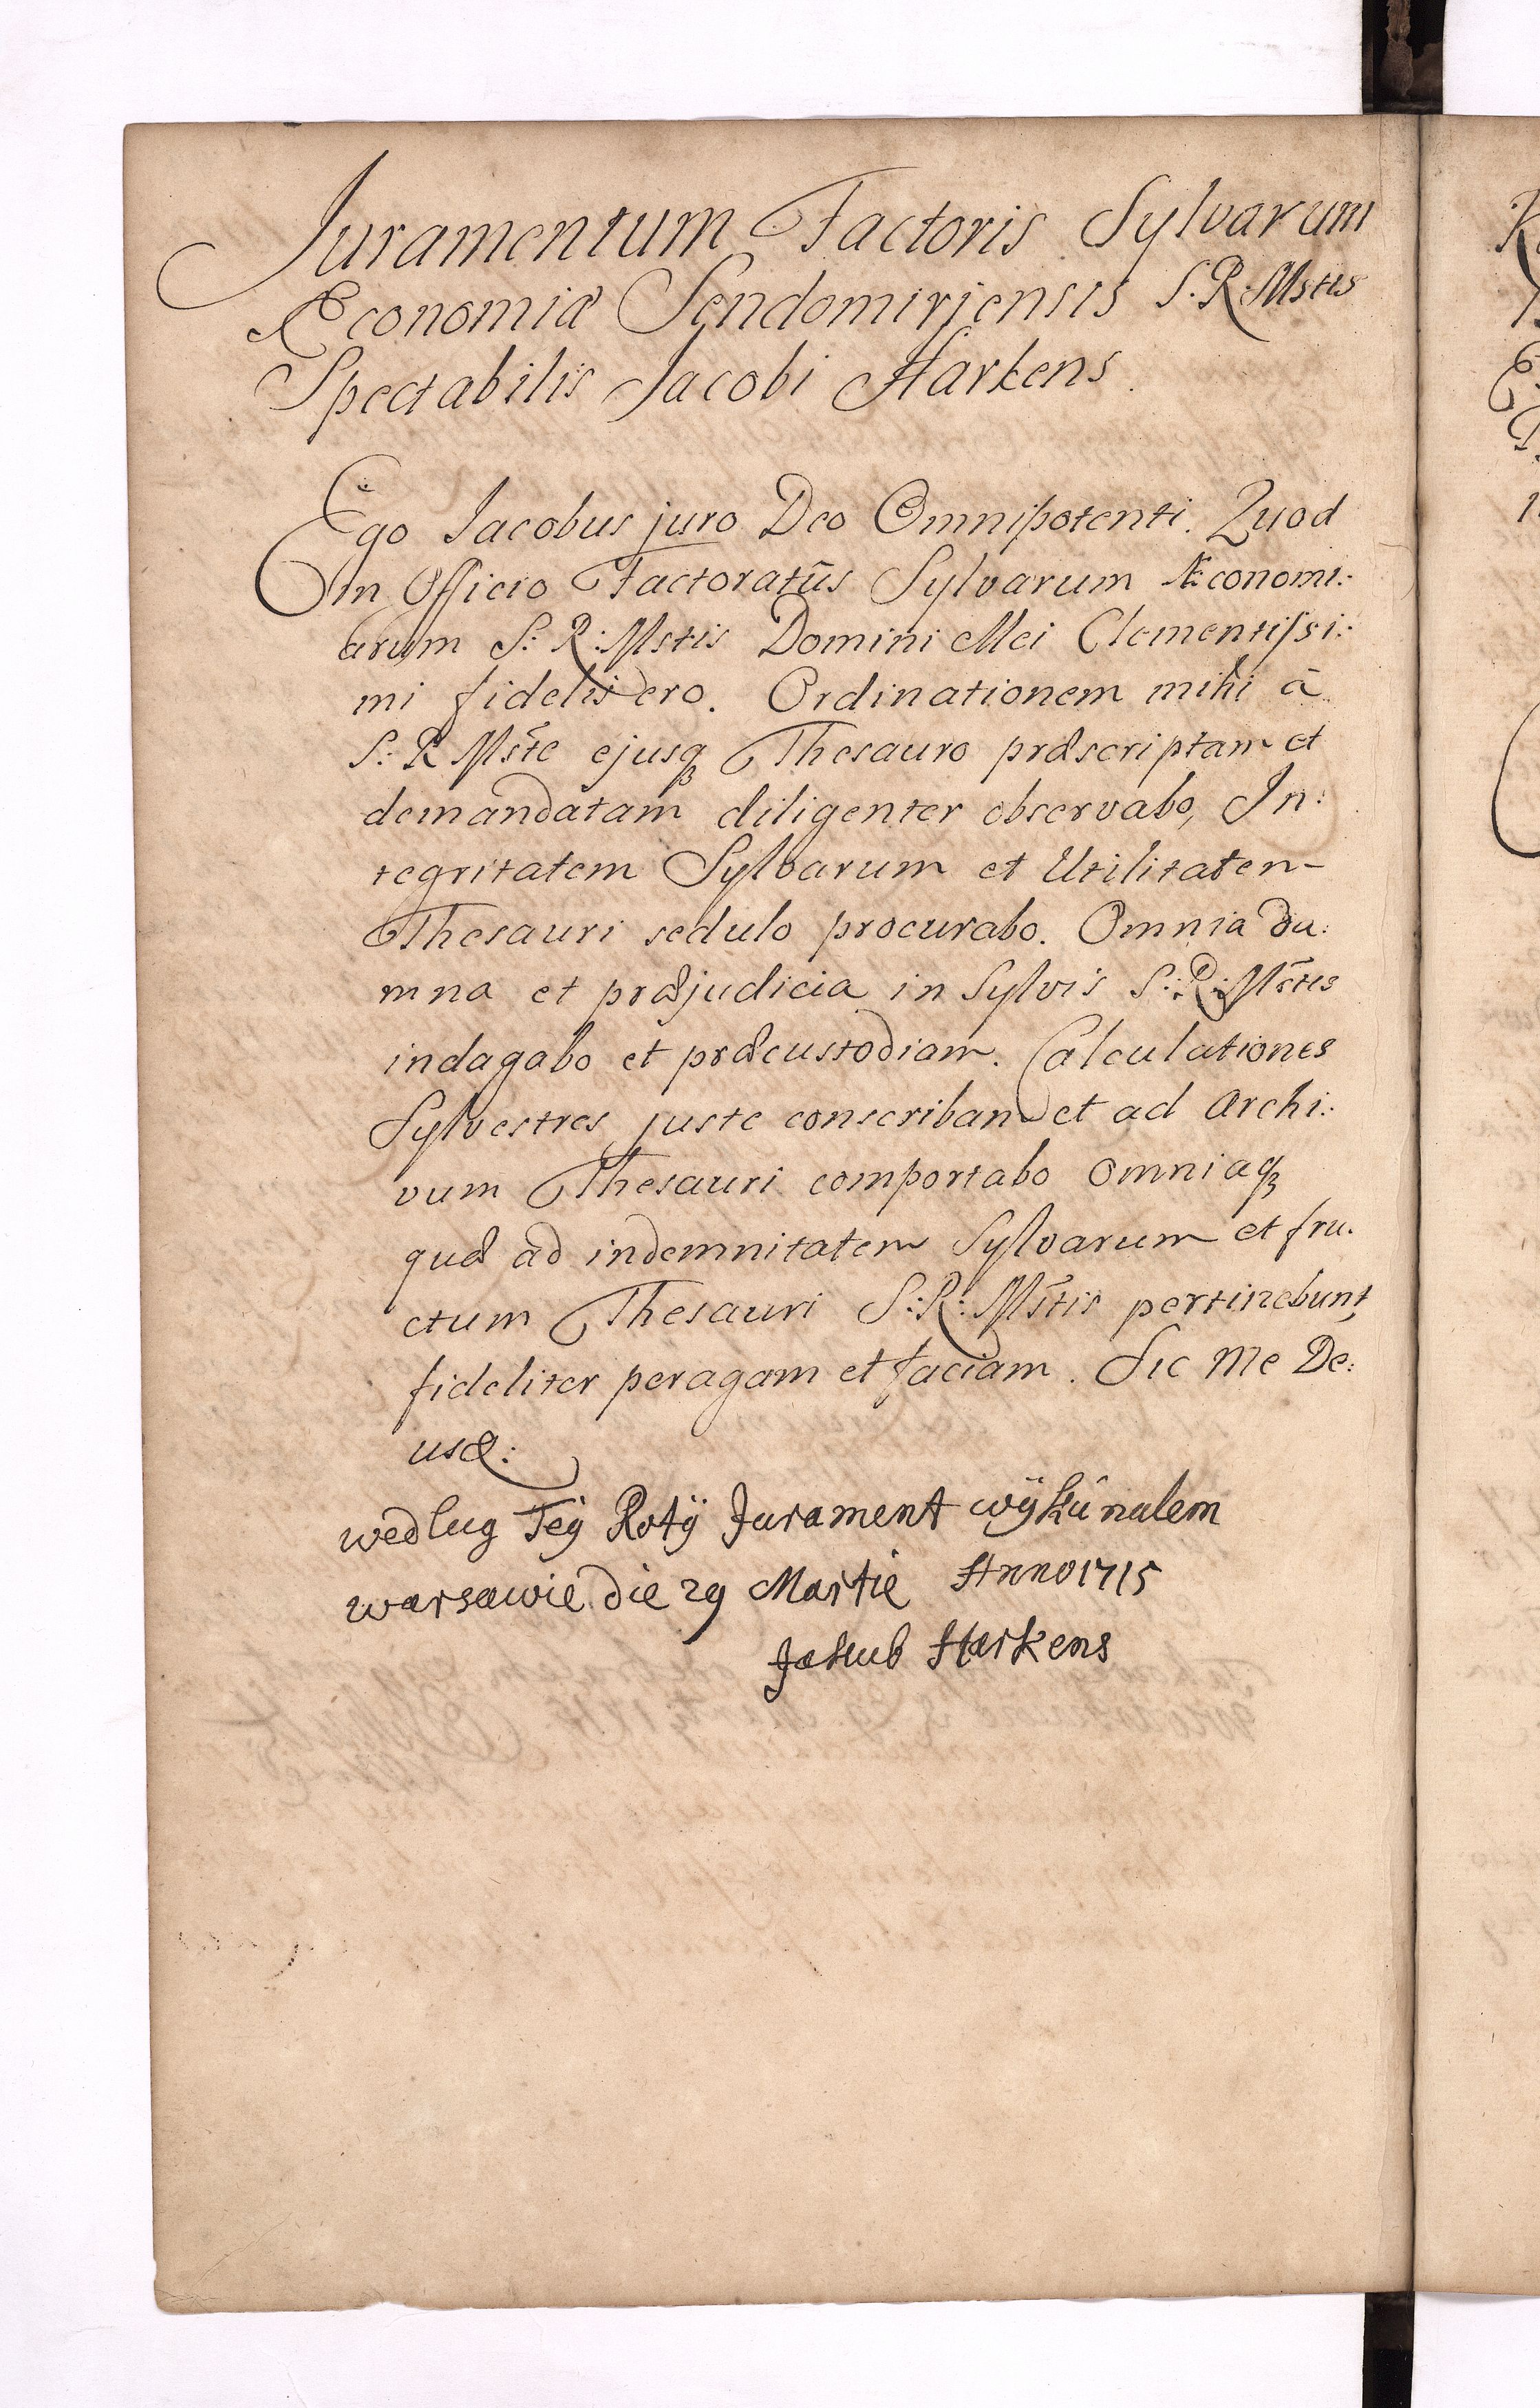 Juramentum Factoris Sylvarum
Æconomiæ Sendomirjensis S: R: Mstis
Spectabilis Jacobi Harkens.
Ego Jacobus juro Deo Omnipotenti. Quod
in Officio Factoratũs Sylvarum Æconomi:
arum S: R: Mstis Domini Mei Clementissi:
mi fidelis ero. Ordinationem mihi à
S: R Mste ejusq₃ Thesauro præscriptam et
demandatam diligenter observabo, In:
tegritatem Sylvarum et Utilitatem
Thesauri sedulo procurabo. Omnia da:
mna et præjudicia in Sylvis S: R: Mstis
indagabo et præcustodiam. Calculationes
Sylvestres juste conscribam et ad Archi:
vum Thesauri comportabo omniaq₃
quæ ad indemnitatem Sylvarum et fru:
ctum Thesauri S: R: Mstis pertinebunt,
fideliter peragam et faciam. Sic Me De:
us &:
wedlug Teÿ Rotÿ Jurament wÿkúnalem
warsawie die 29 Martie Anno 1715
Jakub Harkens